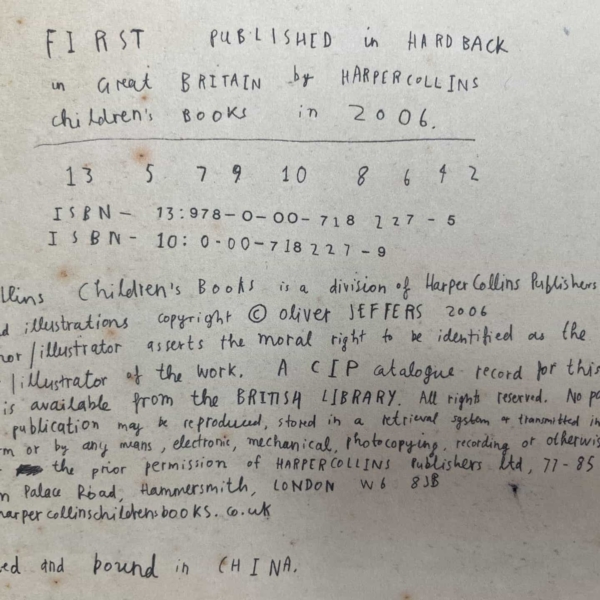 FIRST PUBLISHED in HARDBACK
in Great BRITAIN by HARPERCOLLINS
children's BOOKS in 2006.
13 5 7 9 10 8 6 4 2
ISBN- 13:978-0-00-718 227-5
ISBN- 10: 0-00-718227-9
llins Children's Books is a division of HarperCollins Publishers
d illustrations copyright © oliver JEFFERS 2006
hor/illustrator asserts the moral right to be identified as the
/illustrator of the work. A CIP catalogue record for this
is available from the BRITISH LIBRARY. All rights reserved. No pa
publication may be reproduced, stored in a retrieval system or transmitted in
rm or by any means, electronic, mechanical, photocopying, recording or otherwis
the prior permission of HARPERCOLLINS Publishers Ltd, 77-85
m Palace Road, Hammersmith, LONDON W6 8JB
harpercollinschildrensbooks.co.uk
ed and bound in CHINA.